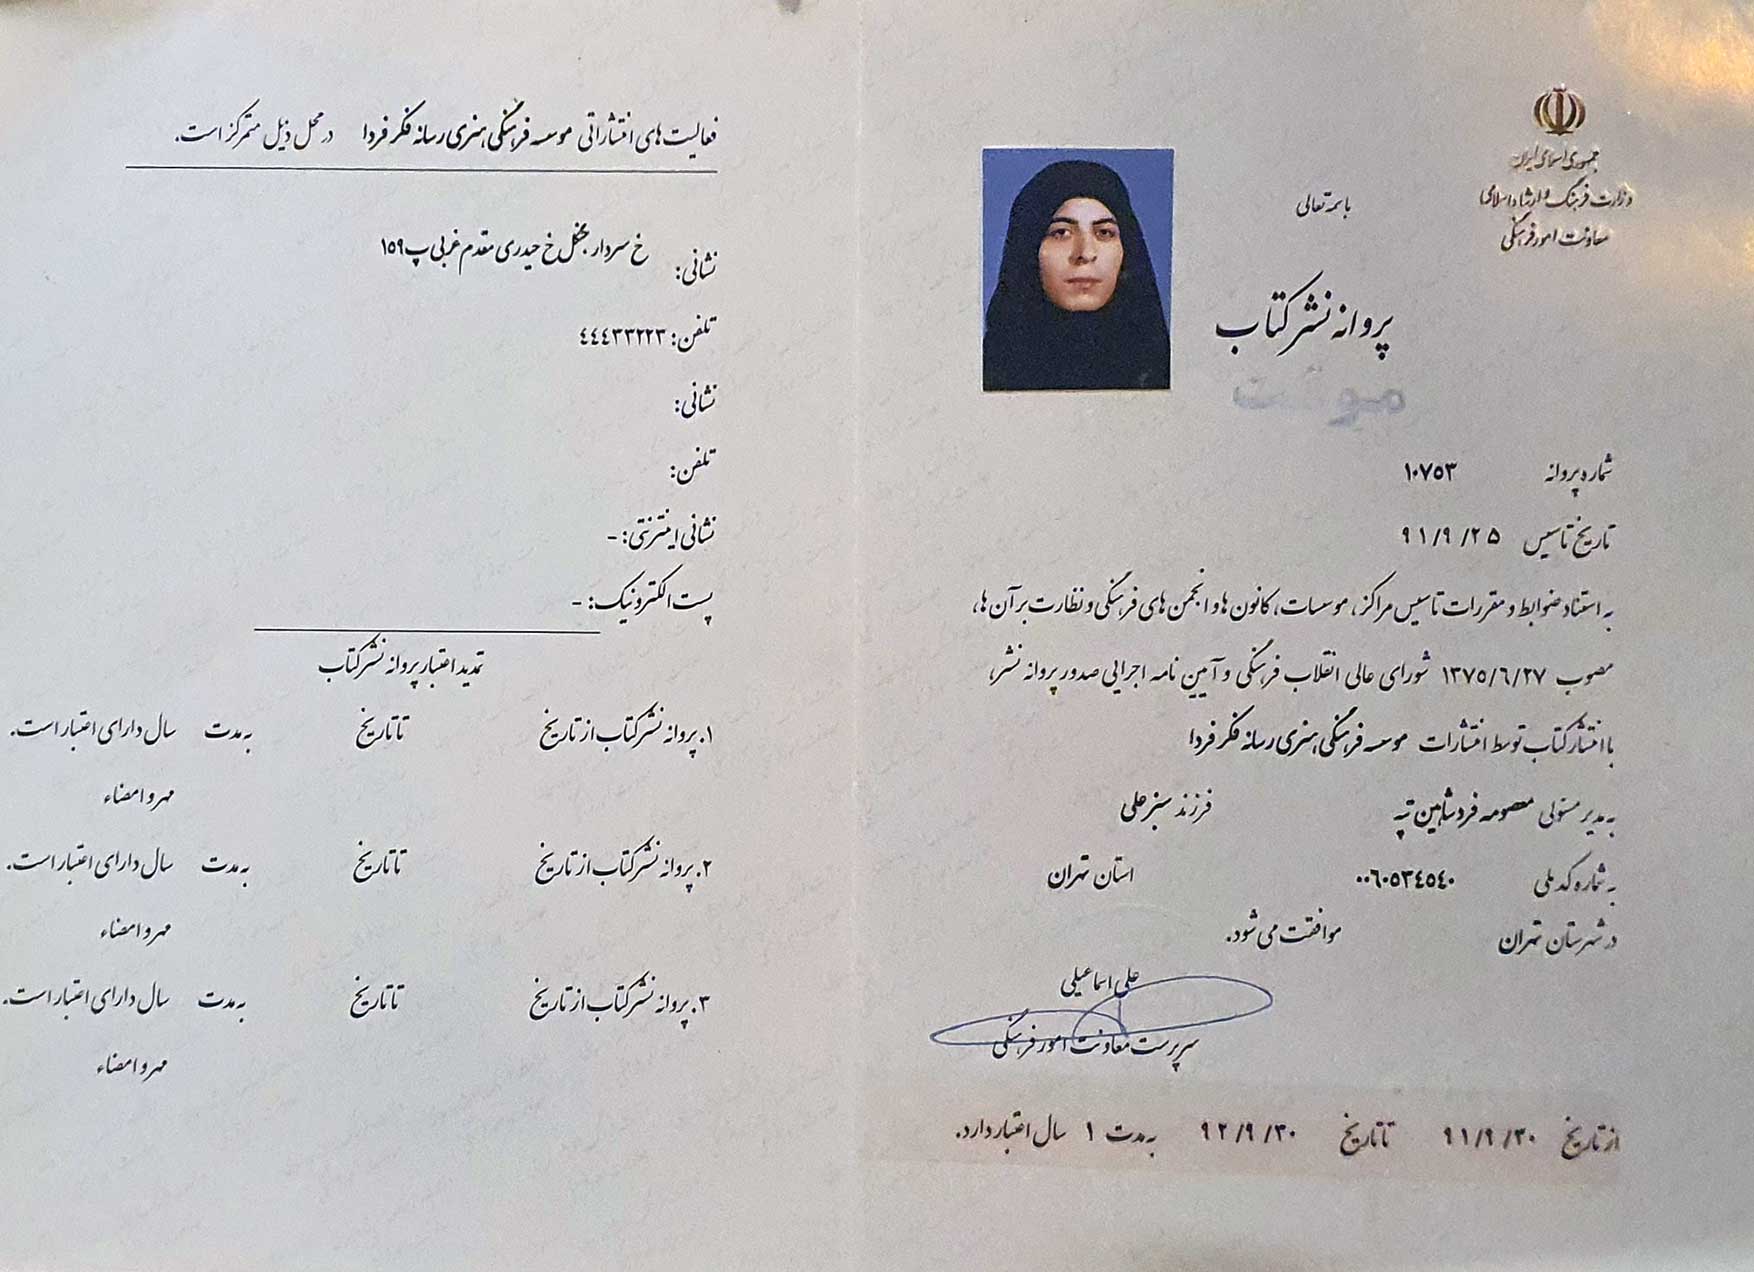 جمهوری اسلامی ایران
وزارت فرهنگ و ارشاد اسلامی
معاونت امور فرهنگی
باسمه تعالی
پروانه نشر کتاب
موقت
شماره پروانه ۱۰۷۵۳
تاریخ تاسیس ۹۱/۹/۲۵
به استناد ضوابط و مقررات تاسیس مراکز، موسسات، کانون ها و انجمن های فرهنگی و نظارت بر آن ها،
مصوب ۱۳۷۵/۶/۲۷ شورای عالی انقلاب فرهنگی و آیین نامه اجرایی صدور پروانه نشر،
با انتشار کتاب توسط انتشارات موسسه فرهنگی هنری رسانه فکر فردا
به مدیر مسئولی معصومه فردشاهین تپه فرزند سبزعلی
به شماره کد ملی ۰۰۶۰۵۳۴۵۴۰ استان تهران
در شهرستان تهران موافقت می شود.
علی اسماعیلی
سرپرست معاونت امور فرهنگی
از تاریخ ۹۱/۹/۳۰ تا تاریخ ۹۲/۹/۳۰ به مدت ۱ سال اعتبار دارد.
فعالیت های انتشاراتی موسسه فرهنگی هنری رسانه فکر فردا در محل ذیل متمرکز است.
نشانی: خ سردار جنگل خ حیدری مقدم غربی پ ۱۵۹
تلفن: ۴۴۴۳۳۲۲۳
نشانی:
تلفن:
نشانی اینترنتی: -
پست الکترونیک: -
تمدید اعتبار پروانه نشر کتاب
۱. پروانه نشر کتاب از تاریخ تا تاریخ به مدت سال دارای اعتبار است.
مهر و امضاء
۲. پروانه نشر کتاب از تاریخ تا تاریخ به مدت سال دارای اعتبار است.
مهر و امضاء
۳. پروانه نشر کتاب از تاریخ تا تاریخ به مدت سال دارای اعتبار است.
مهر و امضاء